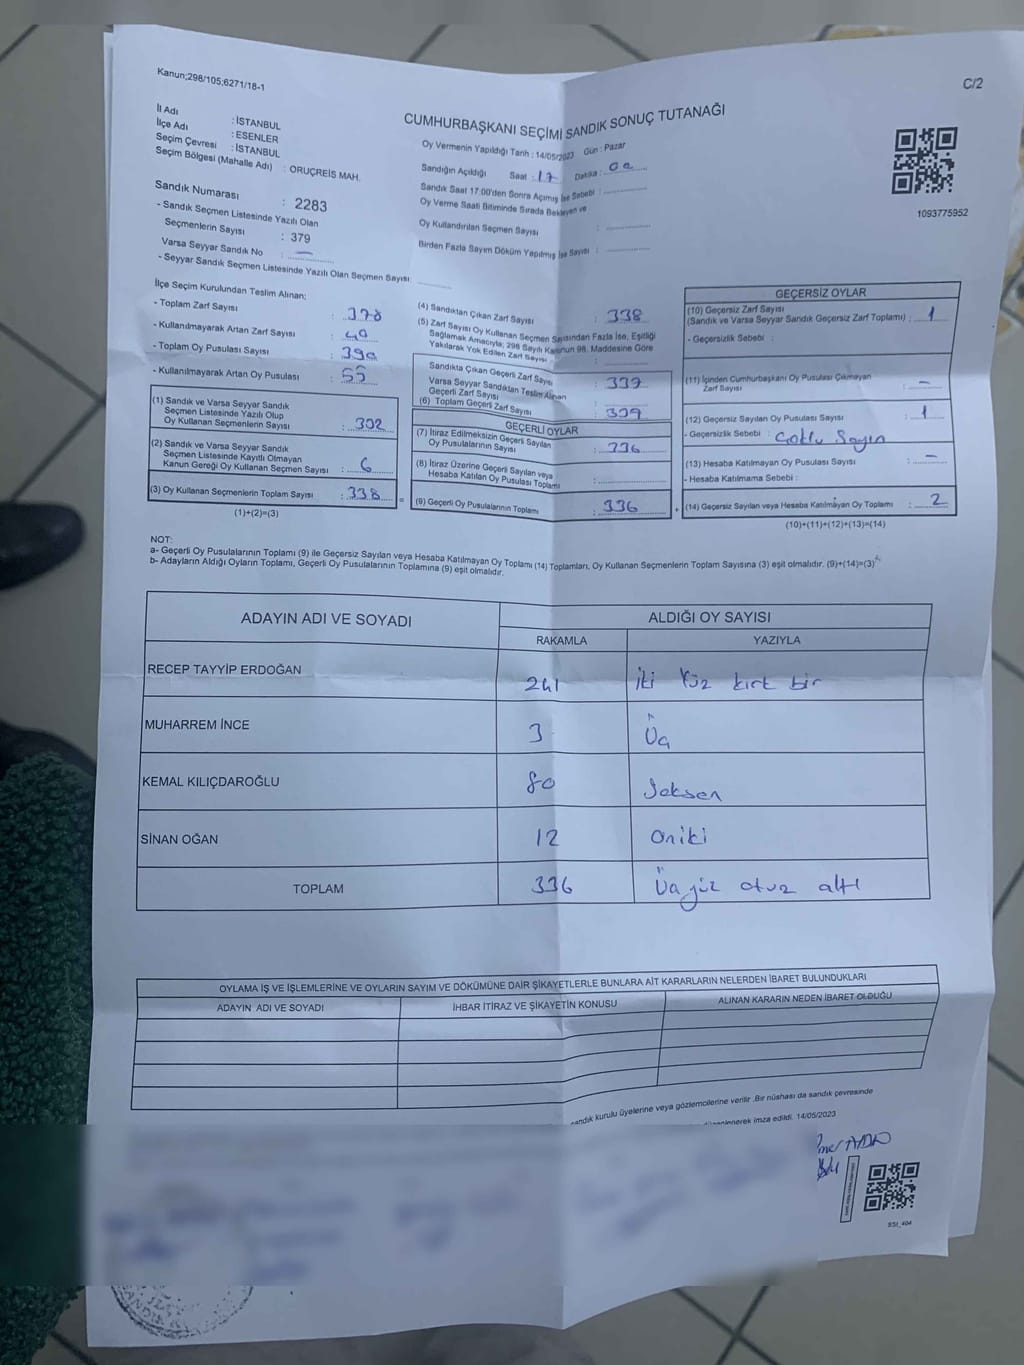 Kanun;298/105;6271/18-1
C/2
CUMHURBAŞKANI SEÇİMİ SANDIK SONUÇ TUTANAĞI
İl Adı : İSTANBUL
İlçe Adı : ESENLER
Seçim Çevresi : İSTANBUL
Seçim Bölgesi (Mahalle Adı) : ORUÇREİS MAH.
Sandık Numarası : 2283
- Sandık Seçmen Listesinde Yazılı Olan
Seçmenlerin Sayısı : 379
Varsa Seyyar Sandık No : —
- Seyyar Sandık Seçmen Listesinde Yazılı Olan Seçmen Sayısı:
Oy Vermenin Yapıldığı Tarih : 14/05/2023 Gün : Pazar
Sandığın Açıldığı Saat : 17 Dakika : 00
Sandık Saat 17:00'den Sonra Açımış İse Sebebi :
Oy Verme Saati Bitiminde Sırada Bekleyen ve
Oy Kullandırılan Seçmen Sayısı :
Birden Fazla Sayım Döküm Yapılmış İse Sayısı :
1093775952
İlçe Seçim Kurulundan Teslim Alınan:
- Toplam Zarf Sayısı : 378
- Kullanılmayarak Artan Zarf Sayısı : 40
- Toplam Oy Pusulası Sayısı : 390
- Kullanılmayarak Artan Oy Pusulası : 55
(1) Sandık ve Varsa Seyyar Sandık
Seçmen Listesinde Yazılı Olup
Oy Kullanan Seçmenlerin Sayısı :
(2) Sandık ve Varsa Seyyar Sandık
Seçmen Listesinde Kayıtlı Olmayan
Kanun Gereği Oy Kullanan Seçmen Sayısı : 6
(3) Oy Kullanan Seçmenlerin Toplam Sayısı : 338
(1)+(2)=(3)
(4) Sandıktan Çıkan Zarf Sayısı : 338
(5) Zarf Sayısı Oy Kullanan Seçmen Sayısından Fazla İse, Eşitliği
Sağlamak Amacıyla; 298 Sayılı Kanunun 98. Maddesine Göre
Yakılarak Yok Edilen Zarf Sayısı :
Sandıkta Çıkan Geçerli Zarf Sayısı : 337
Varsa Seyyar Sandıktan Teslim Alınan
Geçerli Zarf Sayısı :
(6) Toplam Geçerli Zarf Sayısı : 337
GEÇERLİ OYLAR
(7) İtiraz Edilmeksizin Geçerli Sayılan
Oy Pusulalarının Sayısı : 336
(8) İtiraz Üzerine Geçerli Sayılan veya
Hesaba Katılan Oy Pusulası Toplamı :
(9) Geçerli Oy Pusulalarının Toplamı : 336
GEÇERSİZ OYLAR
(10) Geçersiz Zarf Sayısı
(Sandık ve Varsa Seyyar Sandık Geçersiz Zarf Toplamı) : 1
- Geçersizlik Sebebi :
(11) İçinden Cumhurbaşkanı Oy Pusulası Çıkmayan
Zarf Sayısı : —
(12) Geçersiz Sayılan Oy Pusulası Sayısı : 1
- Geçersizlik Sebebi : Çoklu Sayın
(13) Hesaba Katılmayan Oy Pusulası Sayısı : —
- Hesaba Katılmama Sebebi :
(14) Geçersiz Sayılan veya Hesaba Katılmayan Oy Toplamı : 2
(10)+(11)+(12)+(13)=(14)
NOT:
a- Geçerli Oy Pusulalarının Toplamı (9) ile Geçersiz Sayılan veya Hesaba Katılmayan Oy Toplamı (14) Toplamları, Oy Kullanan Seçmenlerin Toplam Sayısına (3) eşit olmalıdır. (9)+(14)=(3)
b- Adayların Aldığı Oyların Toplamı, Geçerli Oy Pusulalarının Toplamına (9) eşit olmalıdır.
ADAYIN ADI VE SOYADI ALDIĞI OY SAYISI
RAKAMLA YAZIYLA
RECEP TAYYİP ERDOĞAN 241 iki Yüz kırk bir
MUHARREM İNCE 3 Üç
KEMAL KILIÇDAROĞLU 80 Seksen
SİNAN OĞAN 12 Oniki
TOPLAM 336 Üçyüz otuz altı
OYLAMA İŞ VE İŞLEMLERİNE VE OYLARIN SAYIM VE DÖKÜMÜNE DAİR ŞİKAYETLERLE BUNLARA AİT KARARLARIN NELERDEN İBARET BULUNDUKLARI
ADAYIN ADI VE SOYADI İHBAR İTİRAZ VE ŞİKAYETİN KONUSU ALINAN KARARIN NEDEN İBARET OLDUĞU
sandık kurulu üyelerine veya gözlemcilerine verilir .Bir nüshası da sandık çevresinde
imza edildi. 14/05/2023
SSI_404